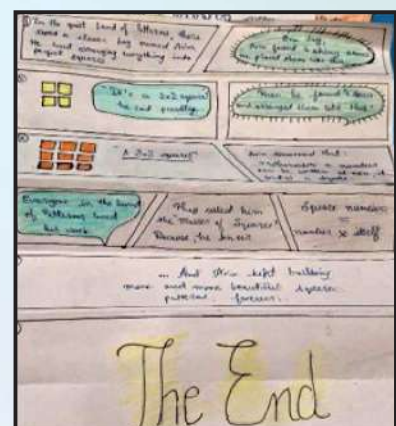 In the quiet Land of Patterns, there
lived a clever boy named Arin.
He loved arranging everything into
perfect squares
One day,
Arin found 4 shiny stones
placed them like this
"It's a 2x2 square!"
he said proudly.
Then he found 9 stones
and arranged them like this:
"A 3x3 square!"
Arin discovered that:
Everyone in the Land
of Patterns loved
his work
They called him
the "Master of Squares"
Because, he knows
Square number
=
number x itself
... And Arin kept building
more and more beautiful square
patterns, forever.
The End